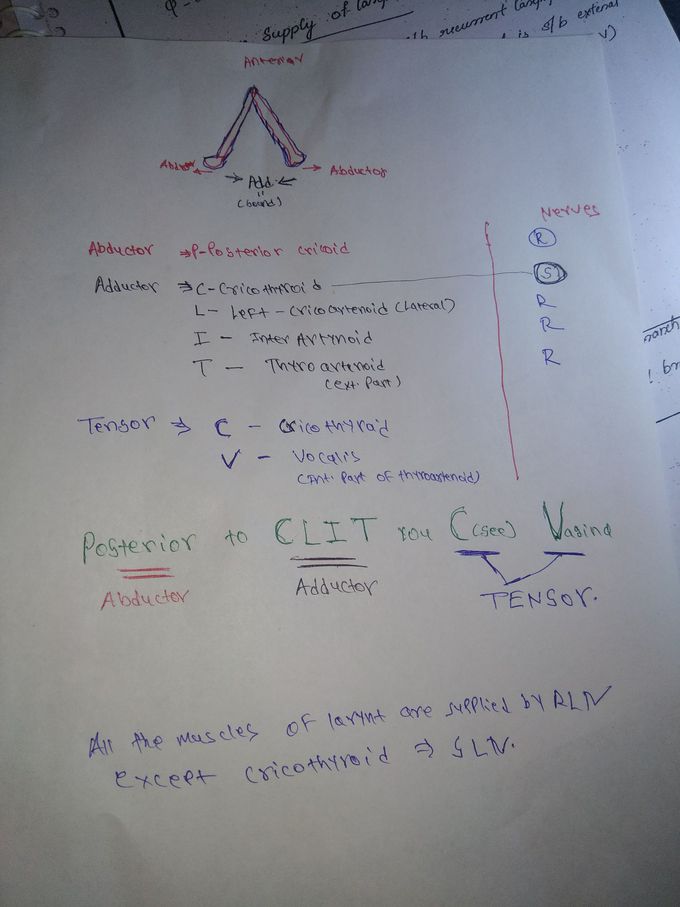 supply of
recurrent
is s/b
Anterior
Abductor
Abductor
Add
=
(bound)
Nerves
Abductor ⇒ P-Posterior cricoid R
Adductor ⇒ C-Cricothyroid S
L - Left - cricoartenoid (Lateral) R
I - Inter Artynoid R
T - Thyroartenoid R
(ext. Part)
Tensor ⇒ C - Cricothyroid
V - Vocalis
(Int. Part of thyroartenoid)
Posterior to CLIT you C(see) Vagina
Abductor Adductor TENSOR.
All the muscles of larynt are supplied by RLN
except cricothyroid ⇒ SLN.